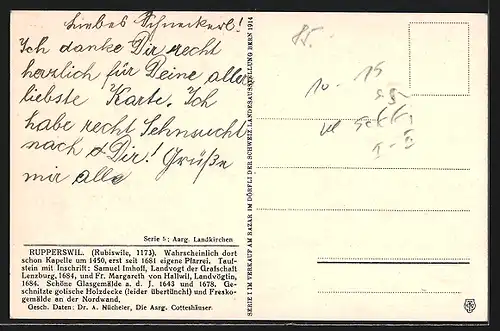 Liebes Schneckerl!
Ich danke Dir recht
herzlich für Deine aller
liebste Karte. Ich
habe recht Sehnsucht
nach Dir! Grüße
mir alle
Serie 5; Aarg. Landkirchen
RUPPERSWIL. (Rubiswile, 1173). Wahrscheinlich dort
schon Kapelle um 1450, erst seit 1681 eigene Pfarrei. Tauf-
stein mit Inschrift: Samuel Imhoff, Landvogt der Grafschaft
Lenzburg, 1684, und Fr. Margareth von Hallwil, Landvögtin,
1684. Schöne Glasgemälde a. d. J. 1643 und 1678. Ge-
schnitzte gotische Holzdecke (leider übertüncht) und Fresko-
gemälde an der Nordwand.
Gesch. Daten: Dr. A. Nücheler, Die Aarg. Gotteshäuser.
SERIE I IM VERKAUF AM BAZAR IM DÖRFLI DER SCHWEIZ. LANDESAUSSTELLUNG BERN 1914
85.-
10.- 15